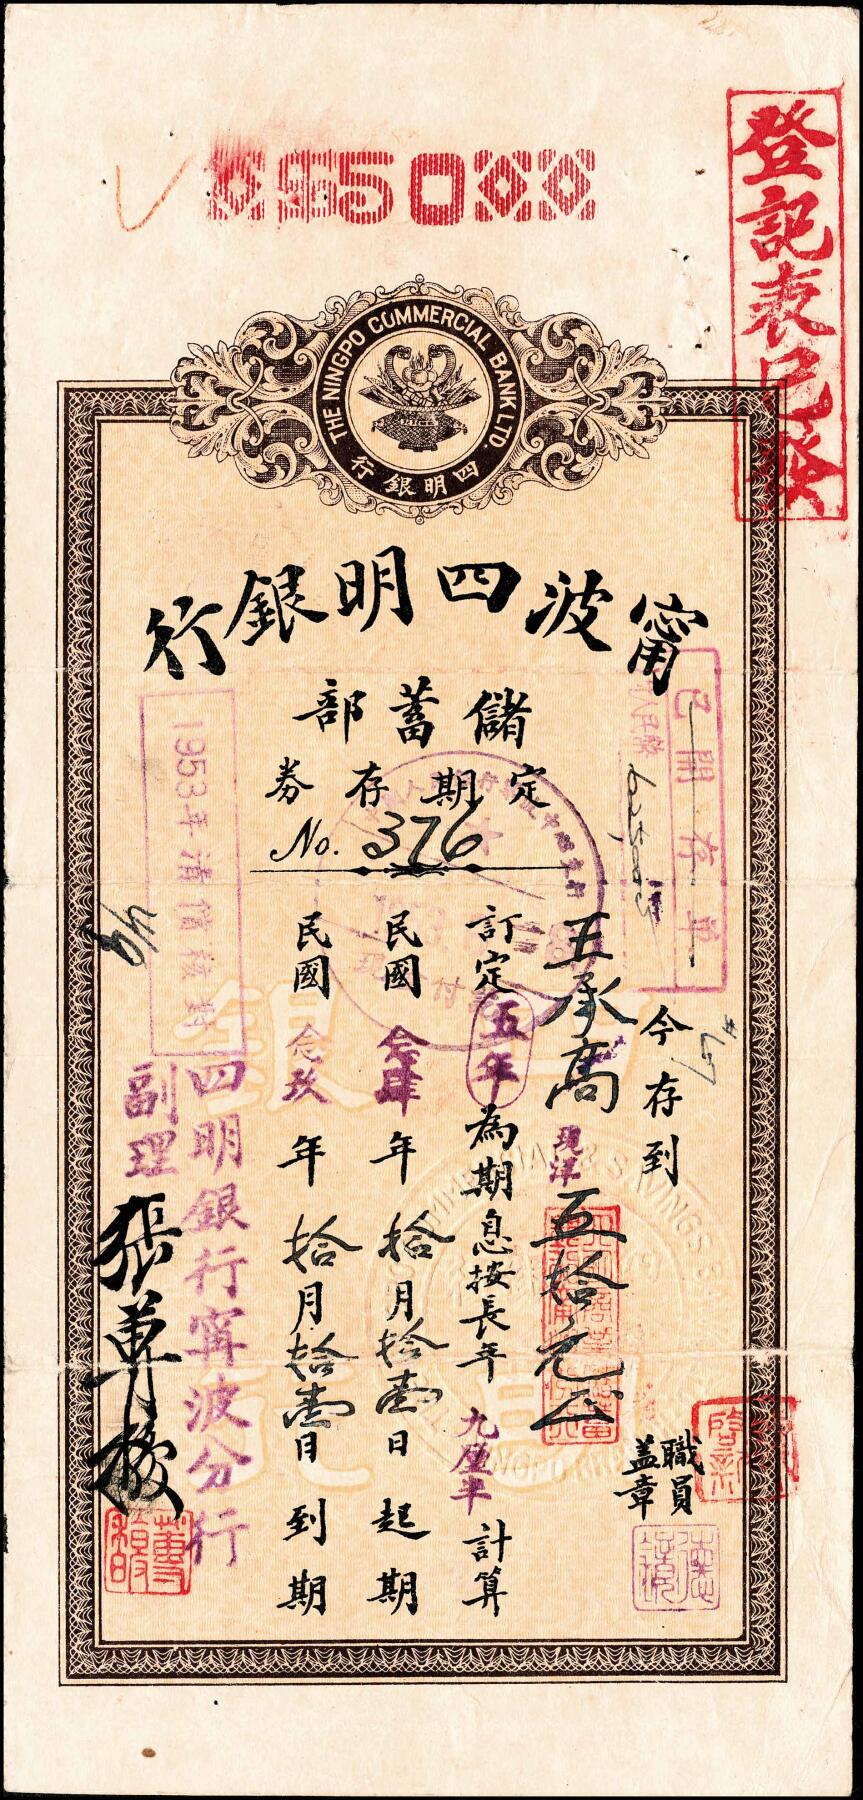 $50
登記表已發
THE NINGPO COMMERCIAL BANK LTD.
四明銀行
甯波四明銀行
儲蓄部
定期存券
No. 376
已開存單
今存到
王承高 現洋 五拾元正
訂定五年為期息按長年九厘半計算
民國念肆年拾月拾壹日起期
民國念玖年拾月拾壹日到期
職員
盖章
1953年清儲核對
四明銀行甯波分行
副理